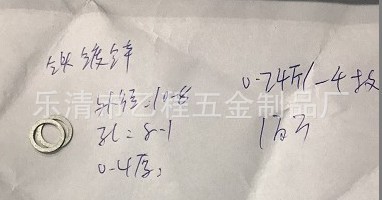 铁镀锌
外径=10-8
孔=8-1
0-4厚
0-24斤/-4
1百
乐清市乙程五金制品厂